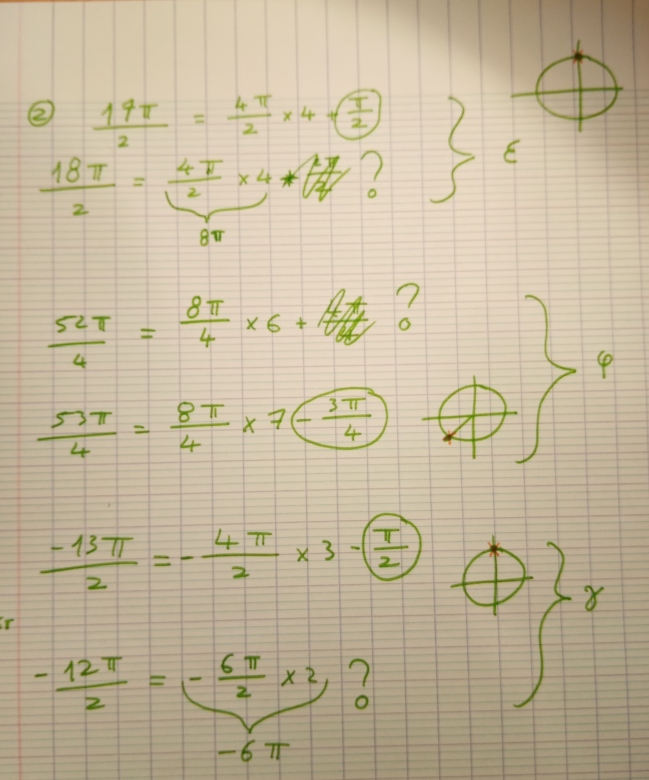 ② 17π/2 = 4π/2 × 4 + π/2
18π/2 = 4π/2 × 4 + ?
8π
ε
52π/4 = 8π/4 × 6 + ?
53π/4 = 8π/4 × 7 - 3π/4
φ
-13π/2 = - 4π/2 × 3 - π/2
γ
- 12π/2 = - 6π/2 × 2 ?
-6π